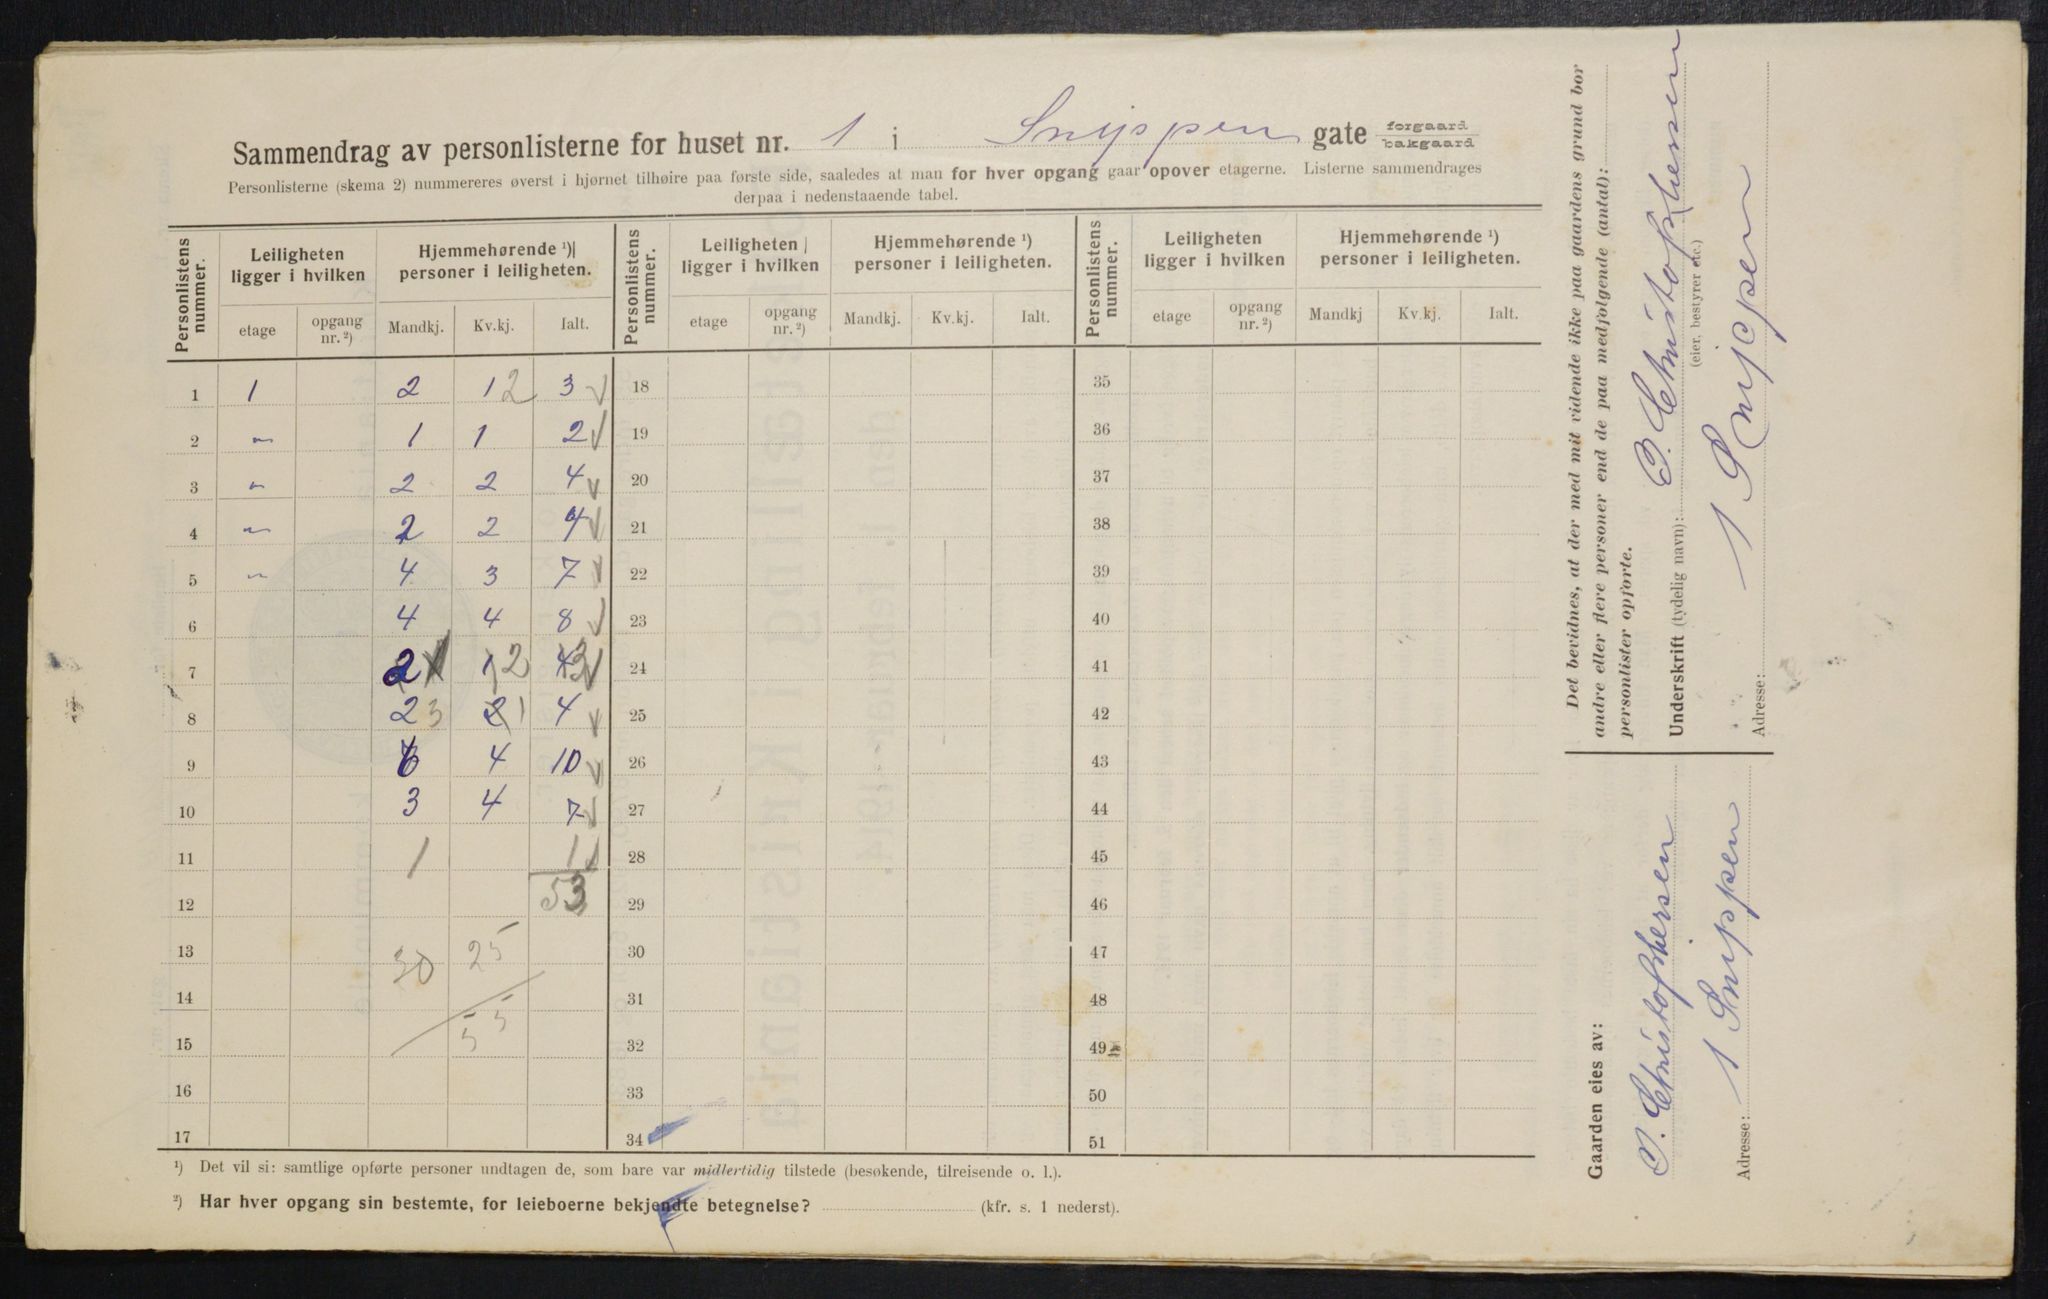 Sammendrag av personlisterne for huset nr. 1 i Snippen gate forgaard bakgaard
Personlisterne (skema 2) nummereres øverst i hjørnet tilhøire paa første side, saaledes at man for hver opgang gaar opover etagerne. Listerne sammendrages
derpaa i nedenstaaende tabel.
Personlistens nummer. Leiligheten ligger i hvilken Hjemmehørende ¹) personer i leiligheten. Personlistens nummer. Leiligheten ligger i hvilken Hjemmehørende ¹) personer i leiligheten. Personlistens nummer. Leiligheten ligger i hvilken Hjemmehørende ¹) personer i leiligheten.
etage opgang nr. ²) Mandkj. Kv.kj. Ialt. etage opgang nr. ²) Mandkj. Kv.kj. Ialt. etage opgang nr. ²) Mandkj Kv.kj. Ialt.
1 1 2 1 2 3 18 35
2 " 1 1 2 19 36
3 " 2 2 4 20 37
4 " 2 2 4 21 38
5 " 4 3 7 22 39
6 4 4 8 23 40
7 2 1 2 3 24 41
8 2 3 2 1 4 25 42
9 6 4 10 26 43
10 3 4 7 27 44
11 1 1 28 45
12 53 29 46
13 30 25 30 47
14 31 48
15 55 32 49
16 33 50
17 34 51
¹) Det vil si: samtlige opførte personer undtagen de, som bare var midlertidig tilstede (besøkende, tilreisende o. l.).
²) Har hver opgang sin bestemte, for leieboerne bekjendte betegnelse? (kfr. s. 1 nederst).
Det bevidnes, at der med mit vidende ikke paa gaardens grund bor
andre eller flere personer end de paa medfølgende (antal):
personlister opførte.
Underskrift (tydelig navn): O. Christophersen
(eier, bestyrer etc.)
Adresse: 1 Snippen
Gaarden eies av:
O. Christophersen
Adresse: 1 Snippen